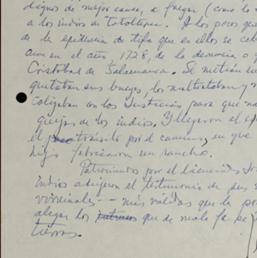 dignos de mejor causa, a fuego (como lo
a los indios de Totoltepec. A los pocos que
de la epidemia de tifo que en ellos se ceb
aun en el año, 1728, de la denuncia o
Cristobal de Salamanca. Se metían
quitaban sus bueyes, los maltrataban y
coligaban con las Justicias para que no
quejas de los indios. Y llegaron el
el tránsito por el camino, en que
hizo fabricaron un rancho.
Patrocinados por el licenciado
Indios adujeron el testimonio de sus
vecindades -- más válidas que la
alegar los que de mala fe pe
tierras.